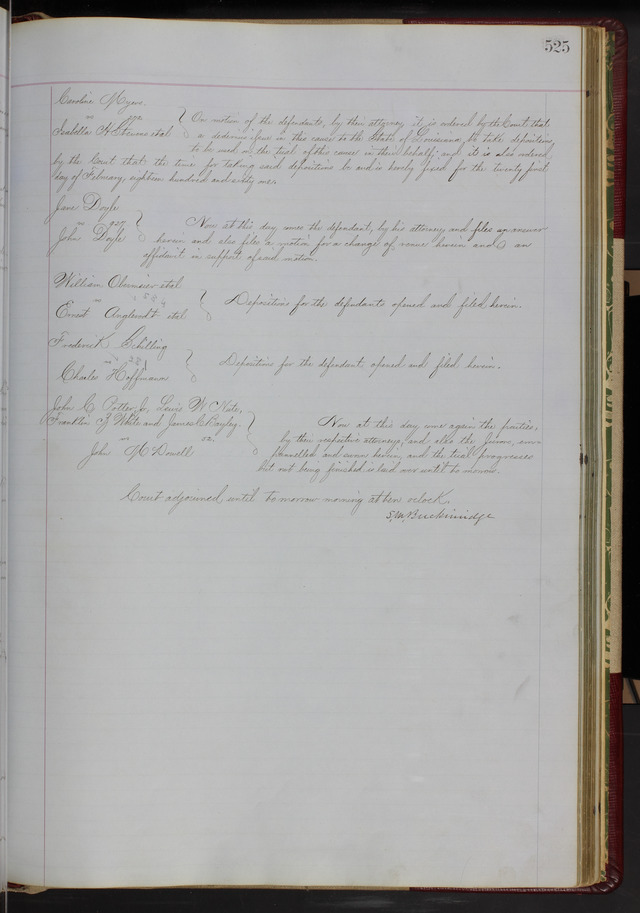 525
Caroline Myers.
vs
Isabella H. Stevens et al } On motion of the defendants, by their attorney it is ordered by the Court that
a dedimus issue in this cause to the State of Louisiana, to take depositions
to be used on the trial of this cause in their behalf; and it is also ordered
by the Court that the time for taking said depositions be and is hereby fixed for the twenty first
day of February, eighteen hundred and sixty one.
Jane Doyle
vs 957
John Doyle } Now at this day comes the defendant, by his attorney and files an answer
herein and also files a motion for a change of venue herein and an
affidavit in support of said motion.
William Obermeier et al
vs
Ernst et al } Depositions for the defendants opened and filed herein.
Frederick Schilling
vs
Charles Hoffmann } Depositions for the defendant opened and filed herein.
John C. Potter Jr, Lewis W. Note,
Franklin Z. White and James C. Bayley. } Now at this day come again the parties,
vs 52.
by their respective attorneys, and also the jurors, em-
John McDowell
pannelled and sworn herein, and the trial progresses
but not being finished is laid over until to morrow.
Court adjourned until to morrow morning at ten o'clock.
S. M. Breckinridge